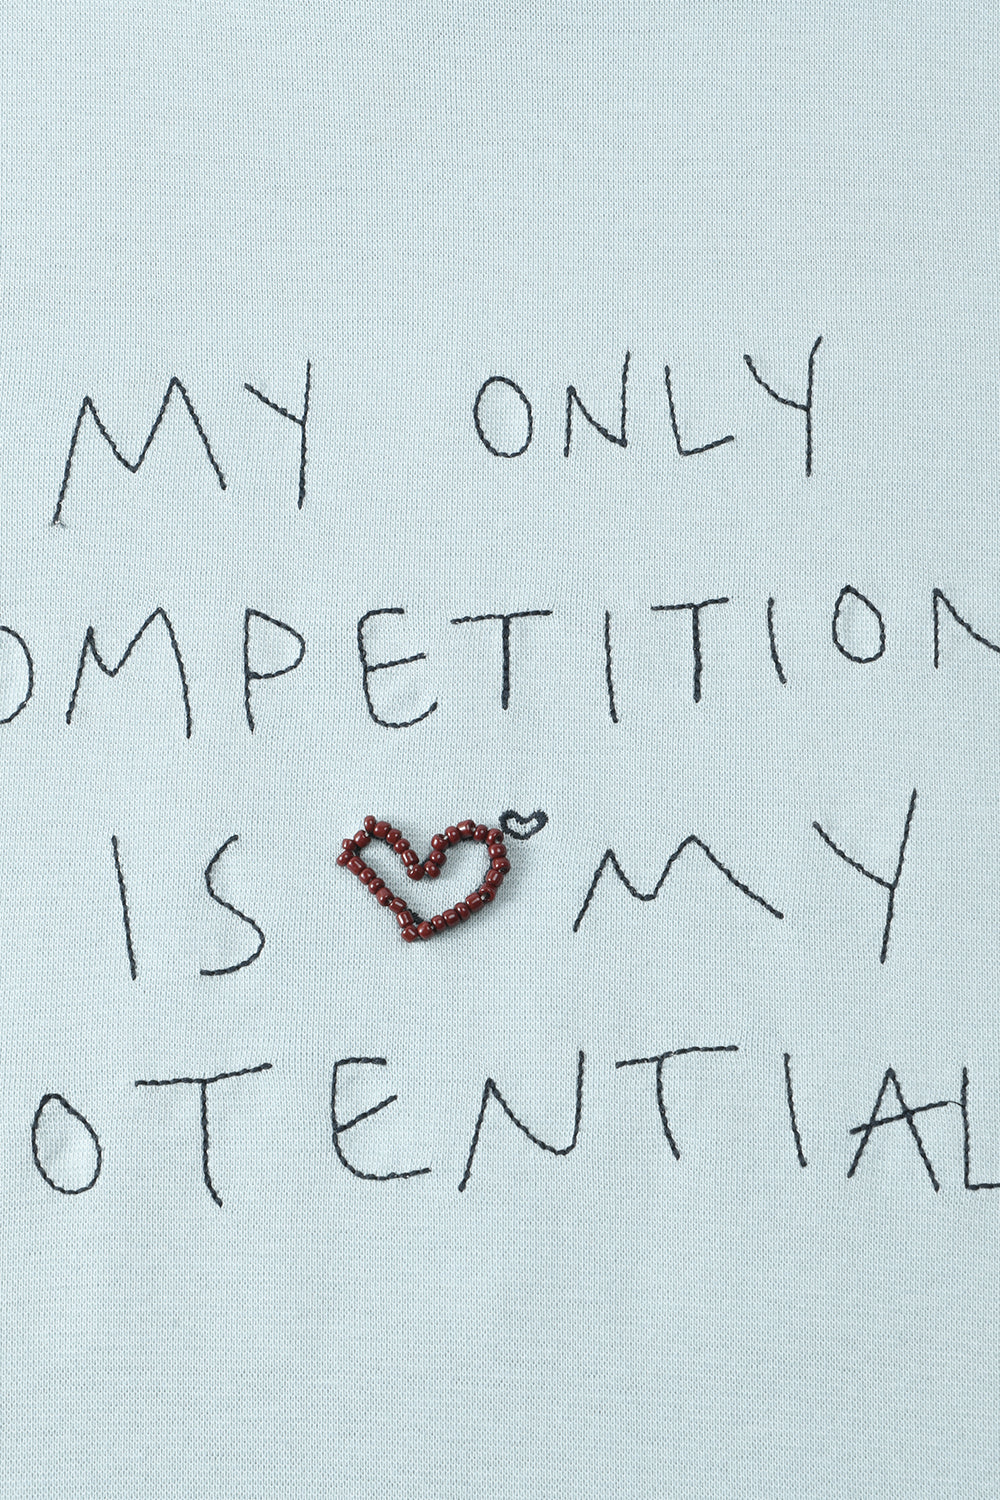 MY ONLY
OMPETITION
IS MY
OTENTIAL